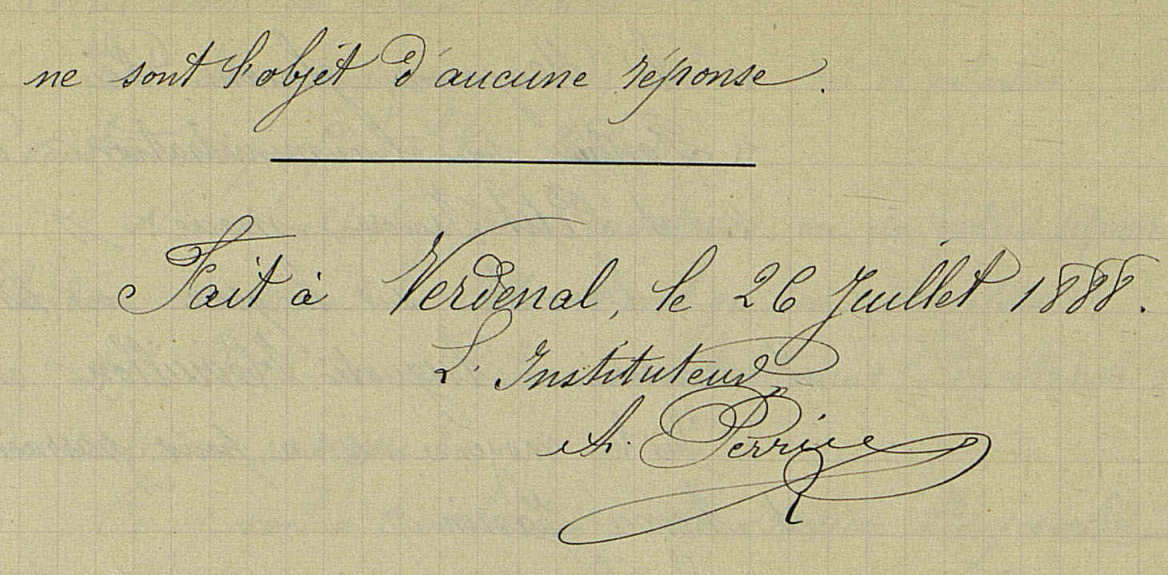 ne sont l'objet d'aucune réponse.
Fait à Verdenal, le 26 Juillet 1888.
L'Instituteur,